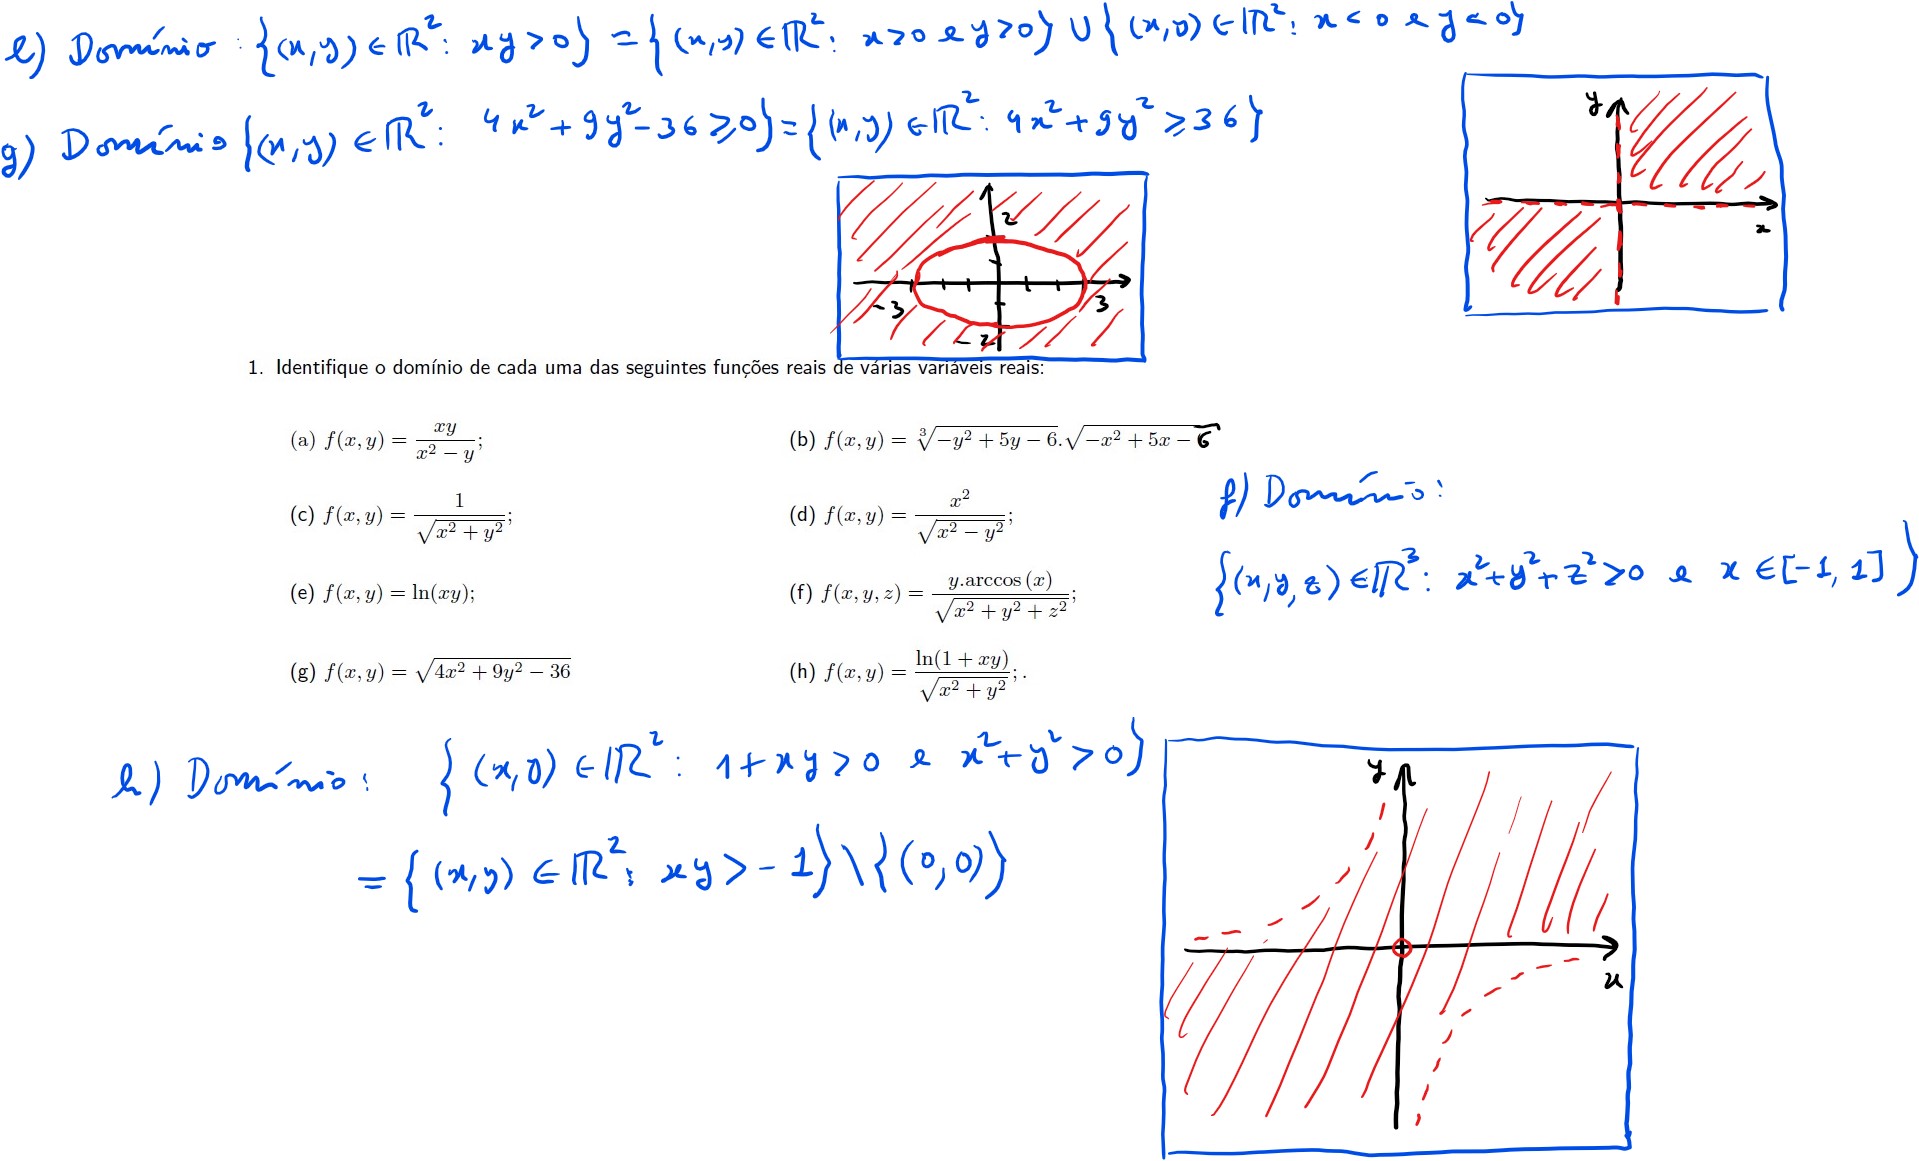 e) Domínio : {(x,y) ∈ ℝ² : xy > 0} = {(x,y) ∈ ℝ² : x > 0 e y > 0} ∪ {(x,y) ∈ ℝ² : x < 0 e y < 0}
g) Domínio {(x,y) ∈ ℝ² : 4x² + 9y² - 36 ≥ 0} = {(x,y) ∈ ℝ² : 4x² + 9y² ≥ 36}
y
x
2
-3
3
-2
1. Identifique o domínio de cada uma das seguintes funções reais de várias variáveis reais:
(a) f(x, y) = xy / (x² − y);
(b) f(x, y) = ∛(−y² + 5y − 6).√(−x² + 5x − 6)
(c) f(x, y) = 1 / √(x² + y²);
(d) f(x, y) = x² / √(x² − y²);
(e) f(x, y) = ln(xy);
(f) f(x, y, z) = y.arccos (x) / √(x² + y² + z²);
(g) f(x, y) = √(4x² + 9y² − 36)
(h) f(x, y) = ln(1 + xy) / √(x² + y²); .
f) Domínio :
{(x,y,z) ∈ ℝ³ : x² + y² + z² > 0 e x ∈ [-1, 1]}
h) Domínio : {(x,y) ∈ ℝ² : 1 + xy > 0 e x² + y² > 0}
= {(x,y) ∈ ℝ² : xy > -1} \ {(0,0)}
y
x